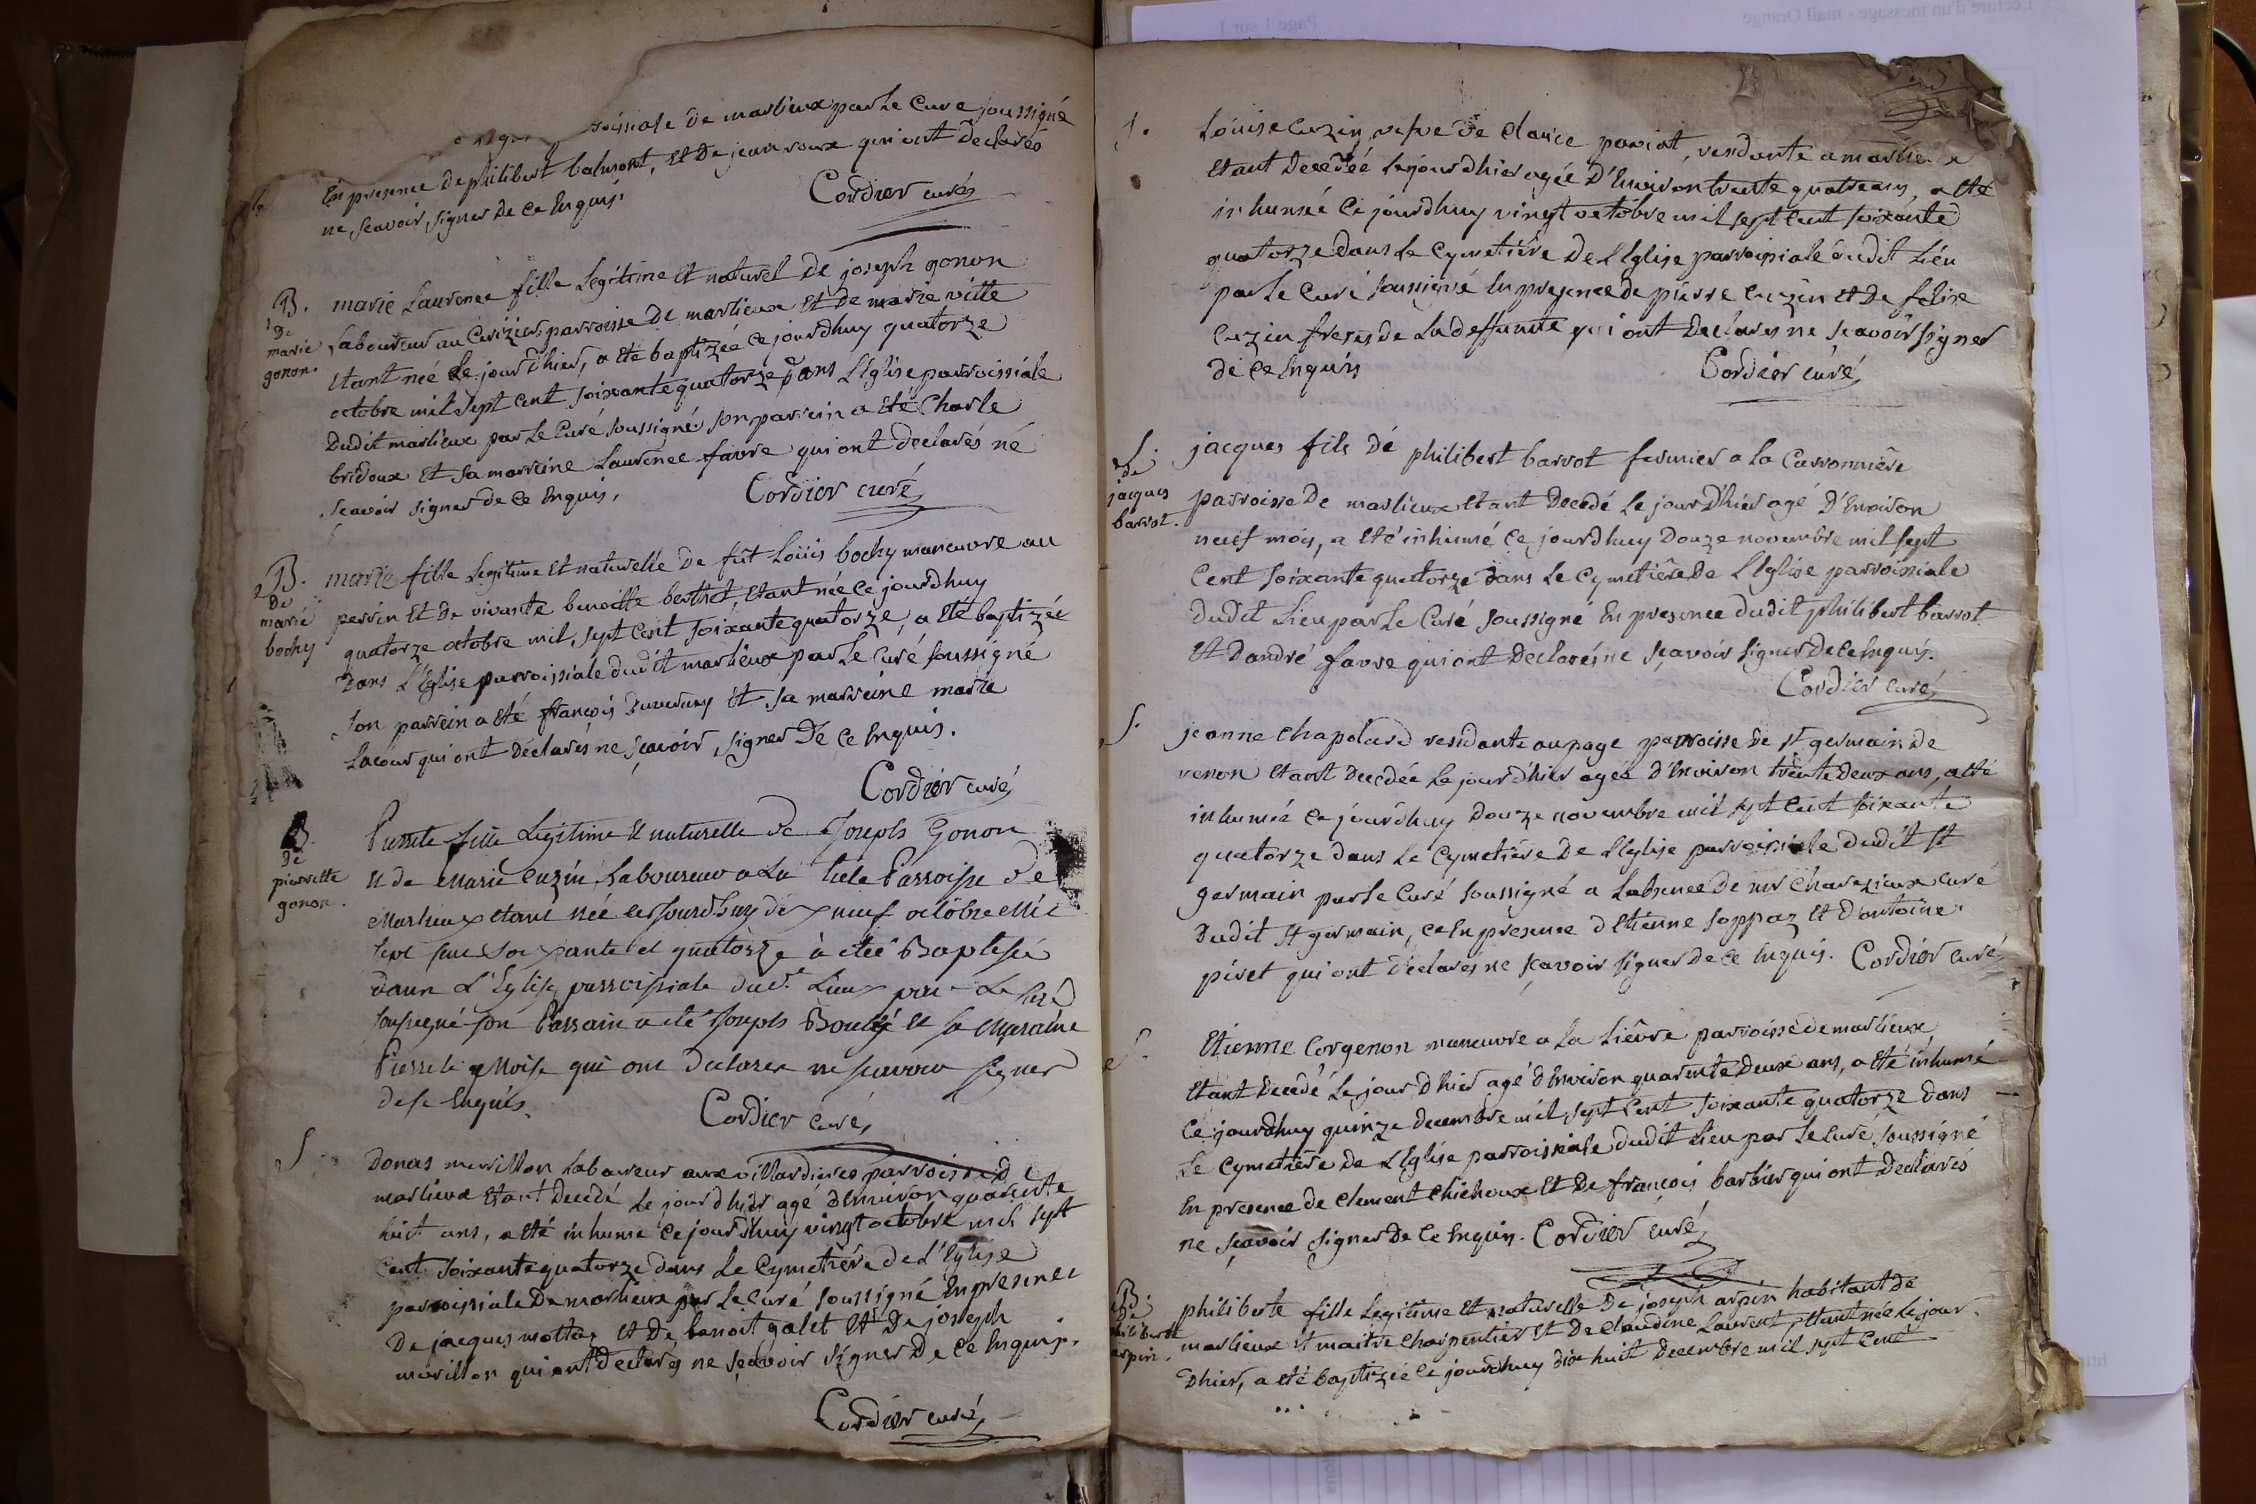 roissiale de marlieux par le Cure soussigné
En presence de philibert balmont, et de jean roux qui ont declarés
ne Scavoir Signer de ce Enquis.
Cordier curé
B.
de
marie
gonon.
marie Laurence fille Legitime et naturel de joseph gonon
Laboureur au Cerizier parroisse de marlieux et de marie vitte
Etant née le jour d'hier, a eté baptizée ce jourdhuy quatorze
octobre mil Sept Cent Soixante quatorze dans L'Eglise parroissiale
dudit marlieux par le Curé Soussigné Son parrein a eté Charle
bridoux et Sa marreine Laurence favre qui ont declarés né
Scavoir Signer de ce Enquis.
Cordier curé
B.
de
marié
bochy
marie fille Legitime et naturelle de fut Loüis bochy manœuvre au
perrin et de vivante benoitte berthet Etant née ce jourdhuy
quatorze octobre mil Sept Cent Soixante quatorze, a eté baptizée
dans L'Eglise parroissiale dudit marlieux par Le Curé Soussigné
Son parrein a eté françois duverney et Sa marreine marie
Lacour qui ont déclarés ne Scavoir Signer de ce Enquis.
Cordier curé
B.
de
pierrette
gonon.
fille Legitime et naturelle de Joseph Gonon
et de Marie Cuzin, Laboureur a La Parroisse de
Marlieux etant née ce jourdhuy dix neuf octobre Mil
sept cent soixante et quatorze à eteé Baptisée
dans L'Eglise parroissiale dud. Lieux par Le Curé
soussigné son Parrain a eté Joseph et sa Maraine
qui ont declarer ne scavoir signer
de ce Enquis.
Cordier curé
S
Donas morillon Laboureur aux villardieres parroisse de
marlieux Etant decedé le jour d'hier agé d'Environ quarente
huit ans, a eté inhumé ce jourdhuy vingt octobre mil Sept
Cent Soixante quatorze dans le Cymetiére de L'Eglise
parroissiale de marlieux par Le Curé Soussigné En presence
De jacques mottaz et de benoit galet et de joseph
morillon qui ont declarés ne Scavoir Signer de ce Enquis.
Cordier curé
S.
Loüise Cuzin, vefve de Claude poriat, residante a marlieux
Etant decedéé le jour dhier agée d'Environ trente quatre ans, a eté
inhumée ce jourdhuy vingt octobre mil Sept Cent Soixante
quatorze dans le Cymetiére de L'Eglise parroissiale dudit Lieu
par le Curé Soussigné En presence de pierre Cuzin et de felix
Cuzin freres de La deffunte qui ont declarés ne Scavoir Signer
de ce Enquis
Cordier curé
S.
de
jacques
barrot.
jacques fils dé philibert barrot fermier a la Carronniére
parroisse de marlieux Etant decedé le jour d'hier agé d'Environ
neuf mois, a eté inhumé ce jourdhuy douze novembre mil Sept
Cent Soixante quatorze dans Le Cymetiére de L'Eglise parroissiale
dudit Lieu par Le Curé Soussigné En presence dudit philibert barrot
Et d'andré favre qui ont declarés ne Scavoir Signer de ce Enquis.
Cordier curé
S.
jeanne Chapolard residante au page parroisse de St germain de
renon Etant decedée le jour d'hier agée d'Environ trente deux ans, a eté
inhumée ce jourdhuy douze novembre mil Sept Cent Soixante
quatorze dans Le Cymetiére de L'Eglise parroissiale dudit St
germain par le Curé Soussigné a L'absence de mr Charezieux curé
dudit St germain, ce En presence d'Etienne Soppaz et d'antoine
piset qui ont declarés ne Scavoir Signer de ce Enquis. Cordier curé
S.
Etienne Corgenon manœuvre a La Liévre parroisse de marlieux
Etant decedé le jour d'hier agé d'Environ quarente deux ans, a eté inhumé
ce jourdhuy quinze decembre mil Sept Cent Soixante quatorze dans
Le Cymetiére de L'Eglise parroissiale dudit Lieu par Le Curé Soussigné
En presence de Clement Chichoux et de françois barbier qui ont declarés
ne Scavoir Signer de ce Enquis. Cordier curé
B.
de
philiberte
arpin.
philiberte fille Legitime et naturelle de joseph arpin habitant de
marlieux et maitre Charpentier et de Claudine Laurent, Etant née le jour
d'hier, a eté baptizée ce jourdhuy dix huit decembre mil Sept Cent